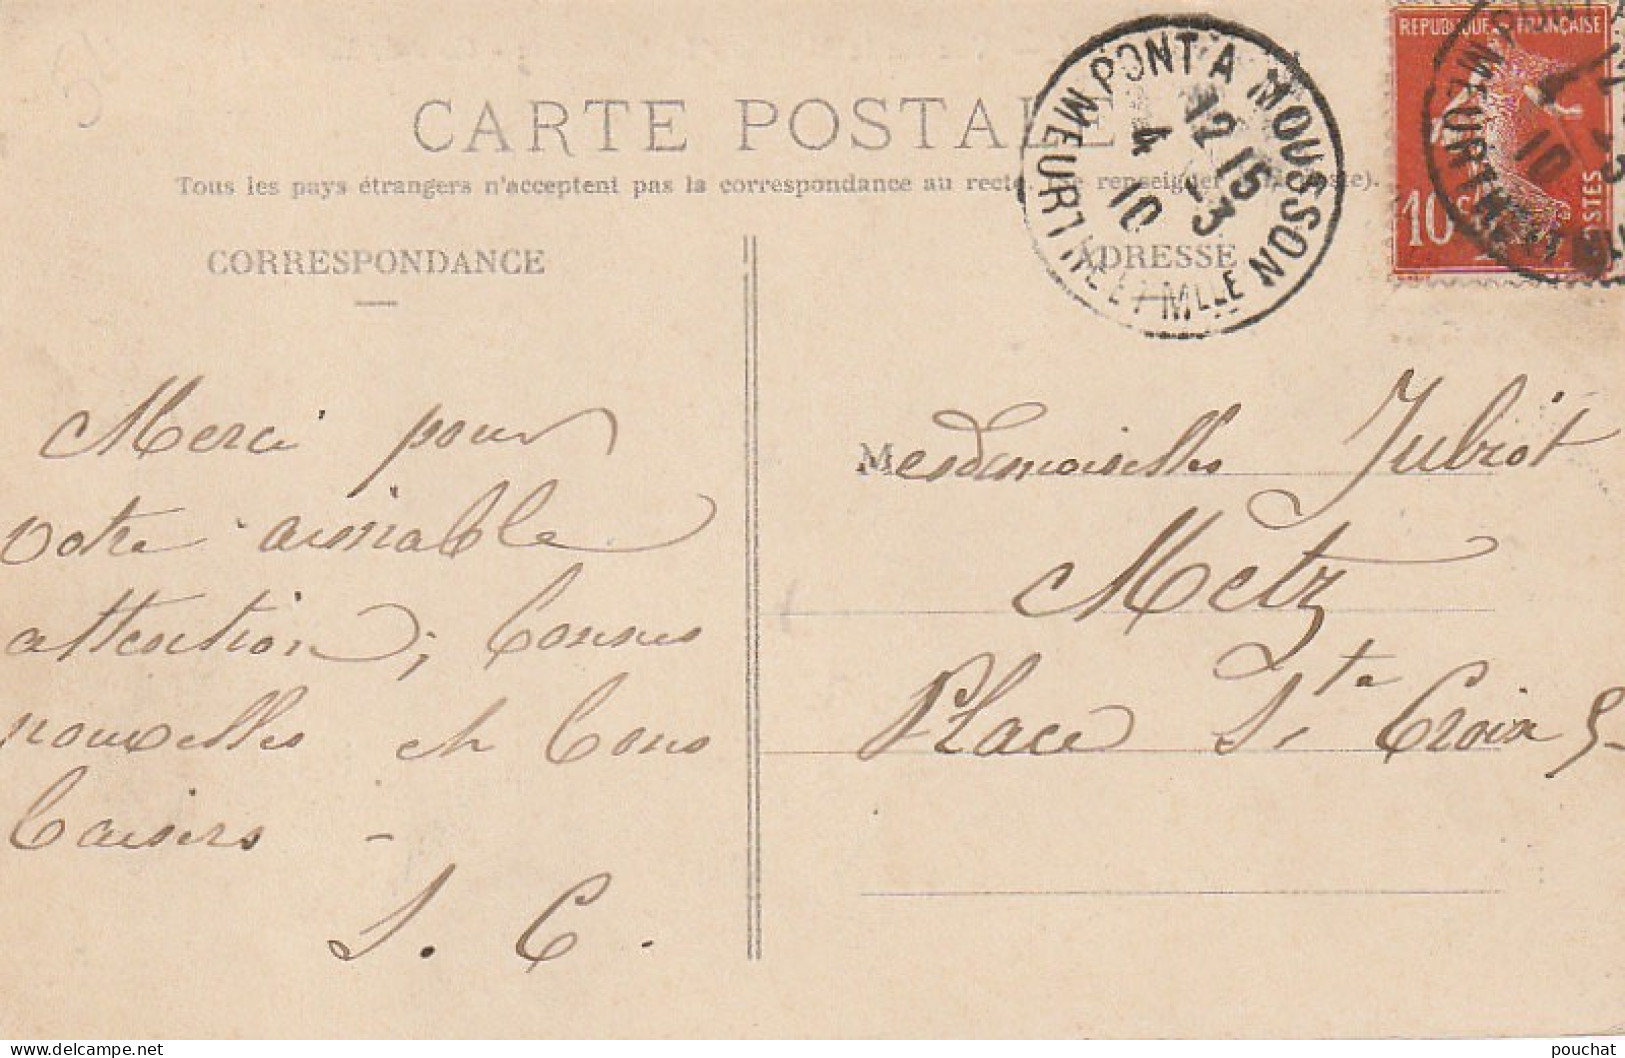 CARTE POSTALE
Tous les pays étrangers n'acceptent pas la correspondance au recto. Se renseigner à la Poste).
CORRESPONDANCE
ADRESSE
PONT A MOUSSON
MEURTHE ET MLLE
12 15
4 -3
10
REPUBLIQUE FRANÇAISE
10 C
POSTES
Merci pour
votre aimable
attention, bonnes
nouvelles et bons
baisers -
S. C.
Mesdemoiselles Jubiot
Metz
Place Ste Croix 5
pouchat